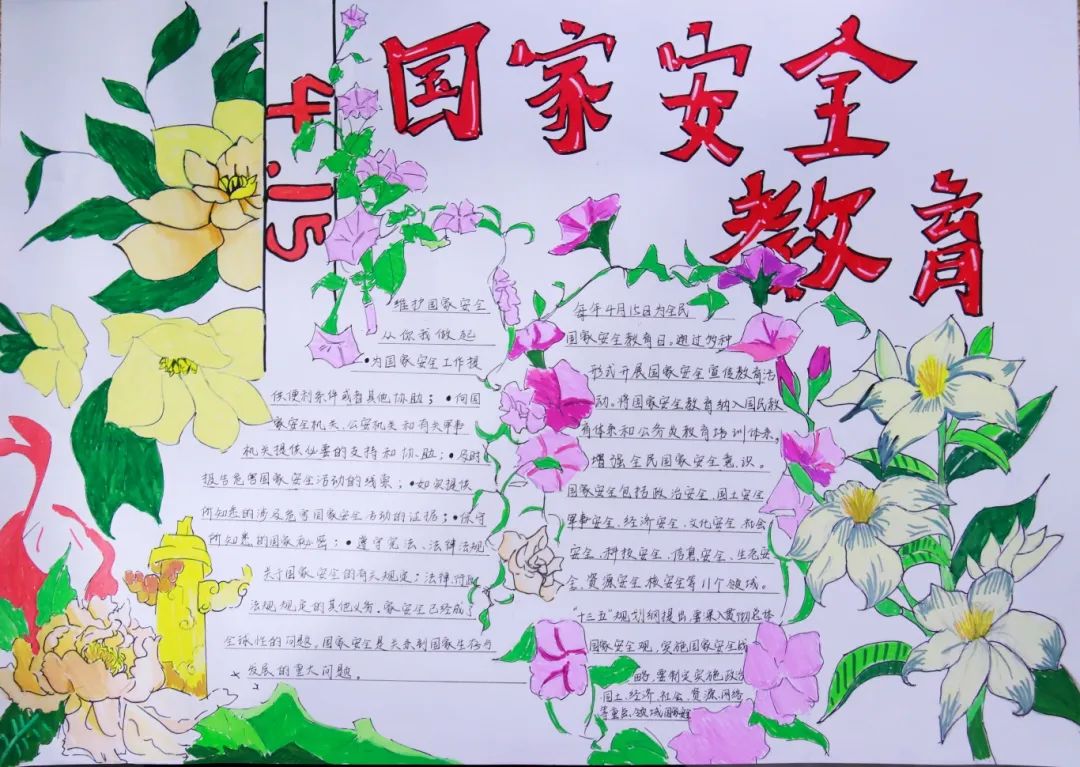 4.15
国家安全
教育
维护国家安全
从你我做起
•为国家安全工作提
供便利条件或者其他协助；•向国
家安全机关、公安机关和有关军事
机关提供必要的支持和协助；•及时
报告危害国家安全活动的线索；•如实提供
所知悉的涉及危害国家安全活动的证据；•保守
所知悉的国家秘密；•遵守宪法、法律法规
关于国家安全的有关规定；法律、行政
法规规定的其他义务，家安全已经成
全球性的问题。国家安全是关系到国家生存与
发展的重大问题。
每年4月15日为全民
国家安全教育日。通过多种
形式开展国家安全宣传教育活
动。将国家安全教育纳入国民教
育体系和公务员教育培训体系。
增强全民国家安全意识。
国家安全包括政治安全、国土安全
军事安全、经济安全、文化安全、社会
安全、科技安全、信息安全、生态安
全、资源安全、核安全等11个领域。
"十三五"规划纲提出要深入贯彻总体
国家安全观，实施国家安全战
略，要制定实施政治
国土、经济、社会、资源、网络
等重点领域国家安全